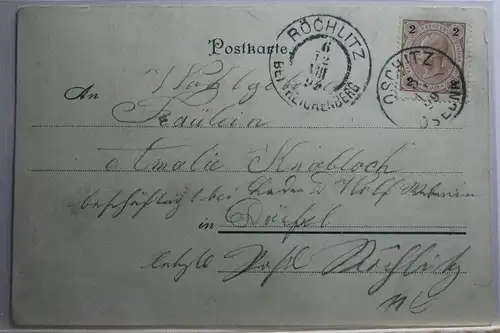 Postkarte.
RÖCHLITZ
6
12
VIII
99
BEI REICHENBERG
2 2
OSCHITZ
OSEČNÁ
An Wohlgb
Fräulein
Amalie Knobloch
beschäftigt bei
in Dörfel
letzte Post Röchlitz